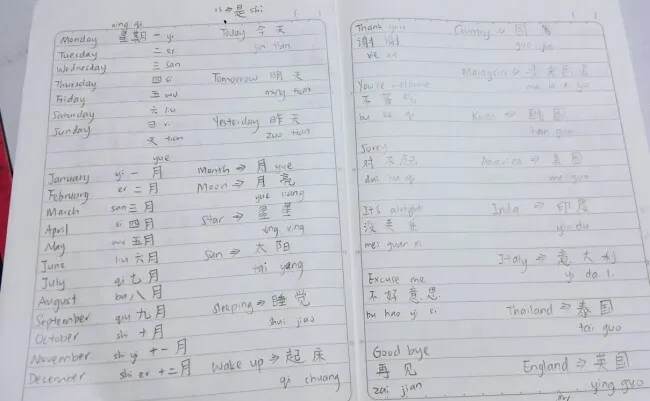 is → 是 shi
xing qi
Monday 星期一 yi Today 今天
Tuesday 二 er jin tian
Wednesday 三 san
Thursday 四 si Tomorrow 明天
Friday 五 wu ming tian
Saturday 六 liu
Sunday 日 ri Yesterday 昨天
天 tian zuo tian
yue
January yi 一月 Month → 月 yue
February er 二月 Moon → 月亮
March san 三月 yue liang
April si 四月 Star → 星星
May wu 五月 xing xing
June liu 六月 Sun → 太阳
July qi 九月 tai yang
August ba 八月
September jiu 九月 Sleeping → 睡觉
October shi 十月 shui jiao
November shi yi 十一月
December shi er 十二月 Wake up → 起床
qi chuang
Thank you Country → 国家
谢谢 guo jia
xie xie
Malaysia → 马来西亚
You're welcome ma lai xi ya
不客气
bu ke qi Korea → 韩国
han guo
Sorry
对不起 America → 美国
dui bu qi mei guo
It's alright India → 印度
没关系 yin du
mei guan xi
Italy → 意大利
Excuse me yi da li
不好意思
bu hao yi si Thailand → 泰国
tai guo
Good bye
再见 England → 英国
zai jian ying guo